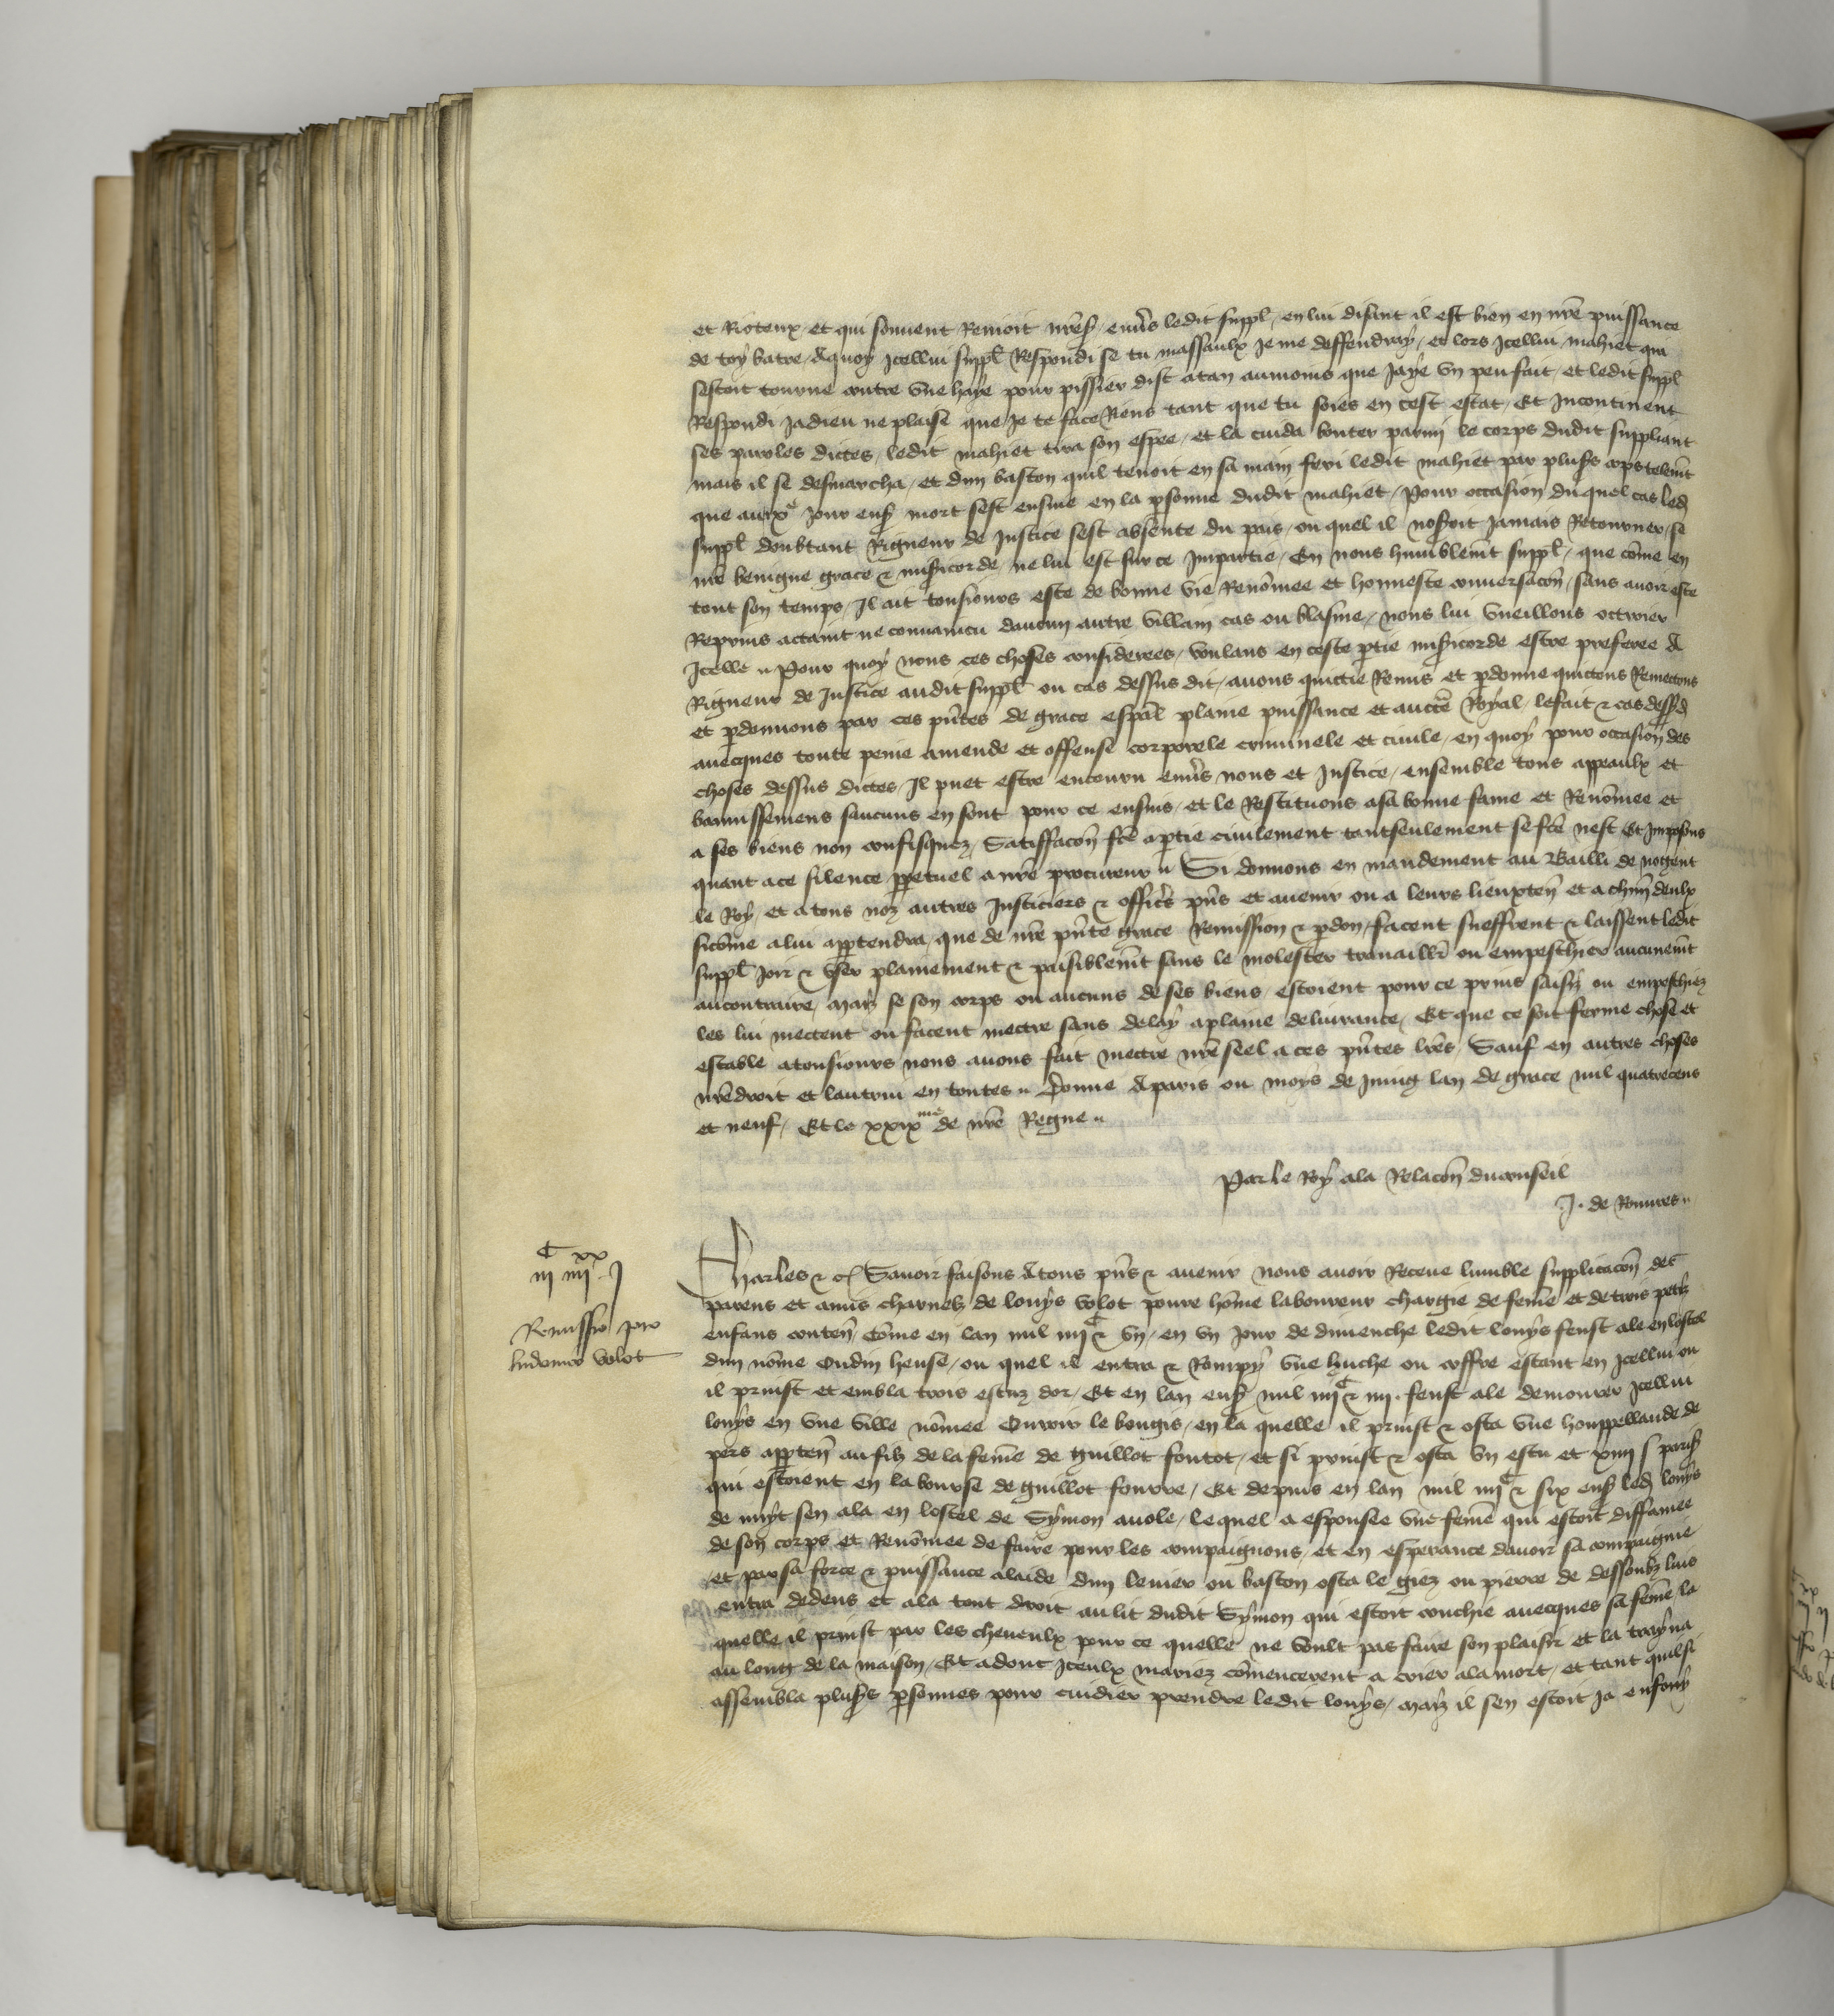 et Rioteux et qui souvent Renioit nres̃ enũs ledit suppl̃ en lui disant il est bien en nr̃e puissance
de toy batre A quoy Icellui suppl̃ Respondi se tu massaulx Je me deffendray et lors Icellui mahiet qui
sestoit tourne contre une haye pour pissier dist atan aumoins que Jaye un peu fait et ledit suppl̃
Respondi Ja dieu ne plaise que Je te face Riens tant que tu soies en cest estat Et Incontinent
ses paroles dictes ledit mahiet tira son espee et la cuida bouter parmi le corps dudit suppliant
mais il se desmarcha et dun baston quil tenoit en sa main feri ledit mahiet par plus̃s cops telem̃t
que au xe Jour ens̃ mort sest ensuie en la p̃sonne dudit mahiet Pour occasion du quel cas led
suppl̃ doubtant Rigueur de Justice sest absente du pais ou quel il noseroit Jamais Retourner se
nr̃e benigne grace & mis̃icorde ne lui est sur ce Impartie En nous humblem̃t suppl̃ que cõme en
tout son temps Il ait tousiours este de bonne vie Renõmee et honneste conversacõn sans avoir este
Reprins actaint ne convaincu daucun autre villain cas ou blasme nous lui vueillons octroier
Icelle Pour quoy nous ces choses considerees voulans en ceste p̃tie mis̃icorde estre preferee A
Rigueur de Justice audit suppl̃ ou cas dessus dit avons quictie Remis et p̃donne quictons Remectons
et p̃donnons par ces pñtes de grace esp̃al plaine puissance et aucte Royal le fait & cas dessusd
avecques toute peine amende et offense corporele criminele et civile en quoy pour occasion des
choses dessus dictes Il puet estre encouru enũs nous et Justice ensemble tous appeaulx et
bannissemens saucuns en sont pour ce ensuis et le Restituons a sa bonne fame et Renõmee et
a ses biens non confisquez Satisfacõn fc̃e a p̃tie civilement tantseulement se fc̃e nest Et Imposons
quant a ce silence p̃petuel a nr̃e procureur Si donnons en mandement au Bailli de nogent
le Roy et a tous noz autres Justiciers & offic̃s p̃ns et avenir ou a leurs lieuxteñ et a chũn deulx
sicõme a lui app̃tendra que de nr̃e pñte grace Remission & p̃don facent sueffrent & laissent ledit
suppl̃ Joir & user plainement & paisiblem̃t sans le molester travaillr̃ ou empeschier aucunem̃t
au contraire mais se son corps ou aucuns de ses biens estoient pour ce prins saisiz ou empeschiez
les lui mectent ou facent mectre sans delay a plaine delivrance Et que ce soit ferme chose et
estable a tousiours nous avons fait mectre nr̃e seel a ces pñtes lr̃es Sauf en autres choses
nr̃e droit et lautrui en toutes Donne A paris ou moys de Juing lan de grace mil quatrecens
et neuf Et le xxixme de nr̃e Regne
Par le Roy a la Relacõn du conseil
J. de Rouvres
C xx
iii iiii j
Remissio pro
ludovico volot
Charles &c Savoir faisons A tous p̃ns & avenir nous avoir Receue lumble supplicacõn des
parens et amis charnelz de louys volot povre hõme laboureur chargie de fem̃e et de trois petiz
enfans conteñ Cõme en lan mil iiiiC & un en un jour de dimenche ledit louys feust ale en lostel
dun nõme Oudin heuse ou quel il entra & Rompy une huche ou coffre estant en Icellui ou
il prinst et embla trois escuz dor Et en lan ens̃ mil iiiiC & iiii feust ale demourer Icellui
louys en une ville nõmee Ouvrir le bougis en la quelle il prinst & osta une houppellande de
pers app̃teñ au filz de la fem̃e de guillot fontot et si prinst & osta un escu et xiiii s paris̃
qui estoient en la bourse de guillot fourre Et depuis en lan mil iiiiC & six ens̃ led louys
de nuyt sen ala en lostel de Symon avole lequel a espousee une fem̃e qui estoit diffamee
de son corps et Renõmee de faire pour les compaignons et en esperance davoir sa compaignie
et par sa force & puissance a laide dun levier ou baston osta le giez ou pierre de dessoubz luis
entra dedens et ala tout droit au lit dudit Symon qui estoit couchie avecques sa fem̃e la
quelle il prinst par les cheveulx pour ce quelle ne voult pas faire son plaisir et la trayna
au long de la maison Et adonc Iceulx mariez cõmencerent a crier a la mort et tant quil si
assembla plus̃s p̃sonnes pour cuidier prendre ledit louys mais il sen estoit Ja enfouy